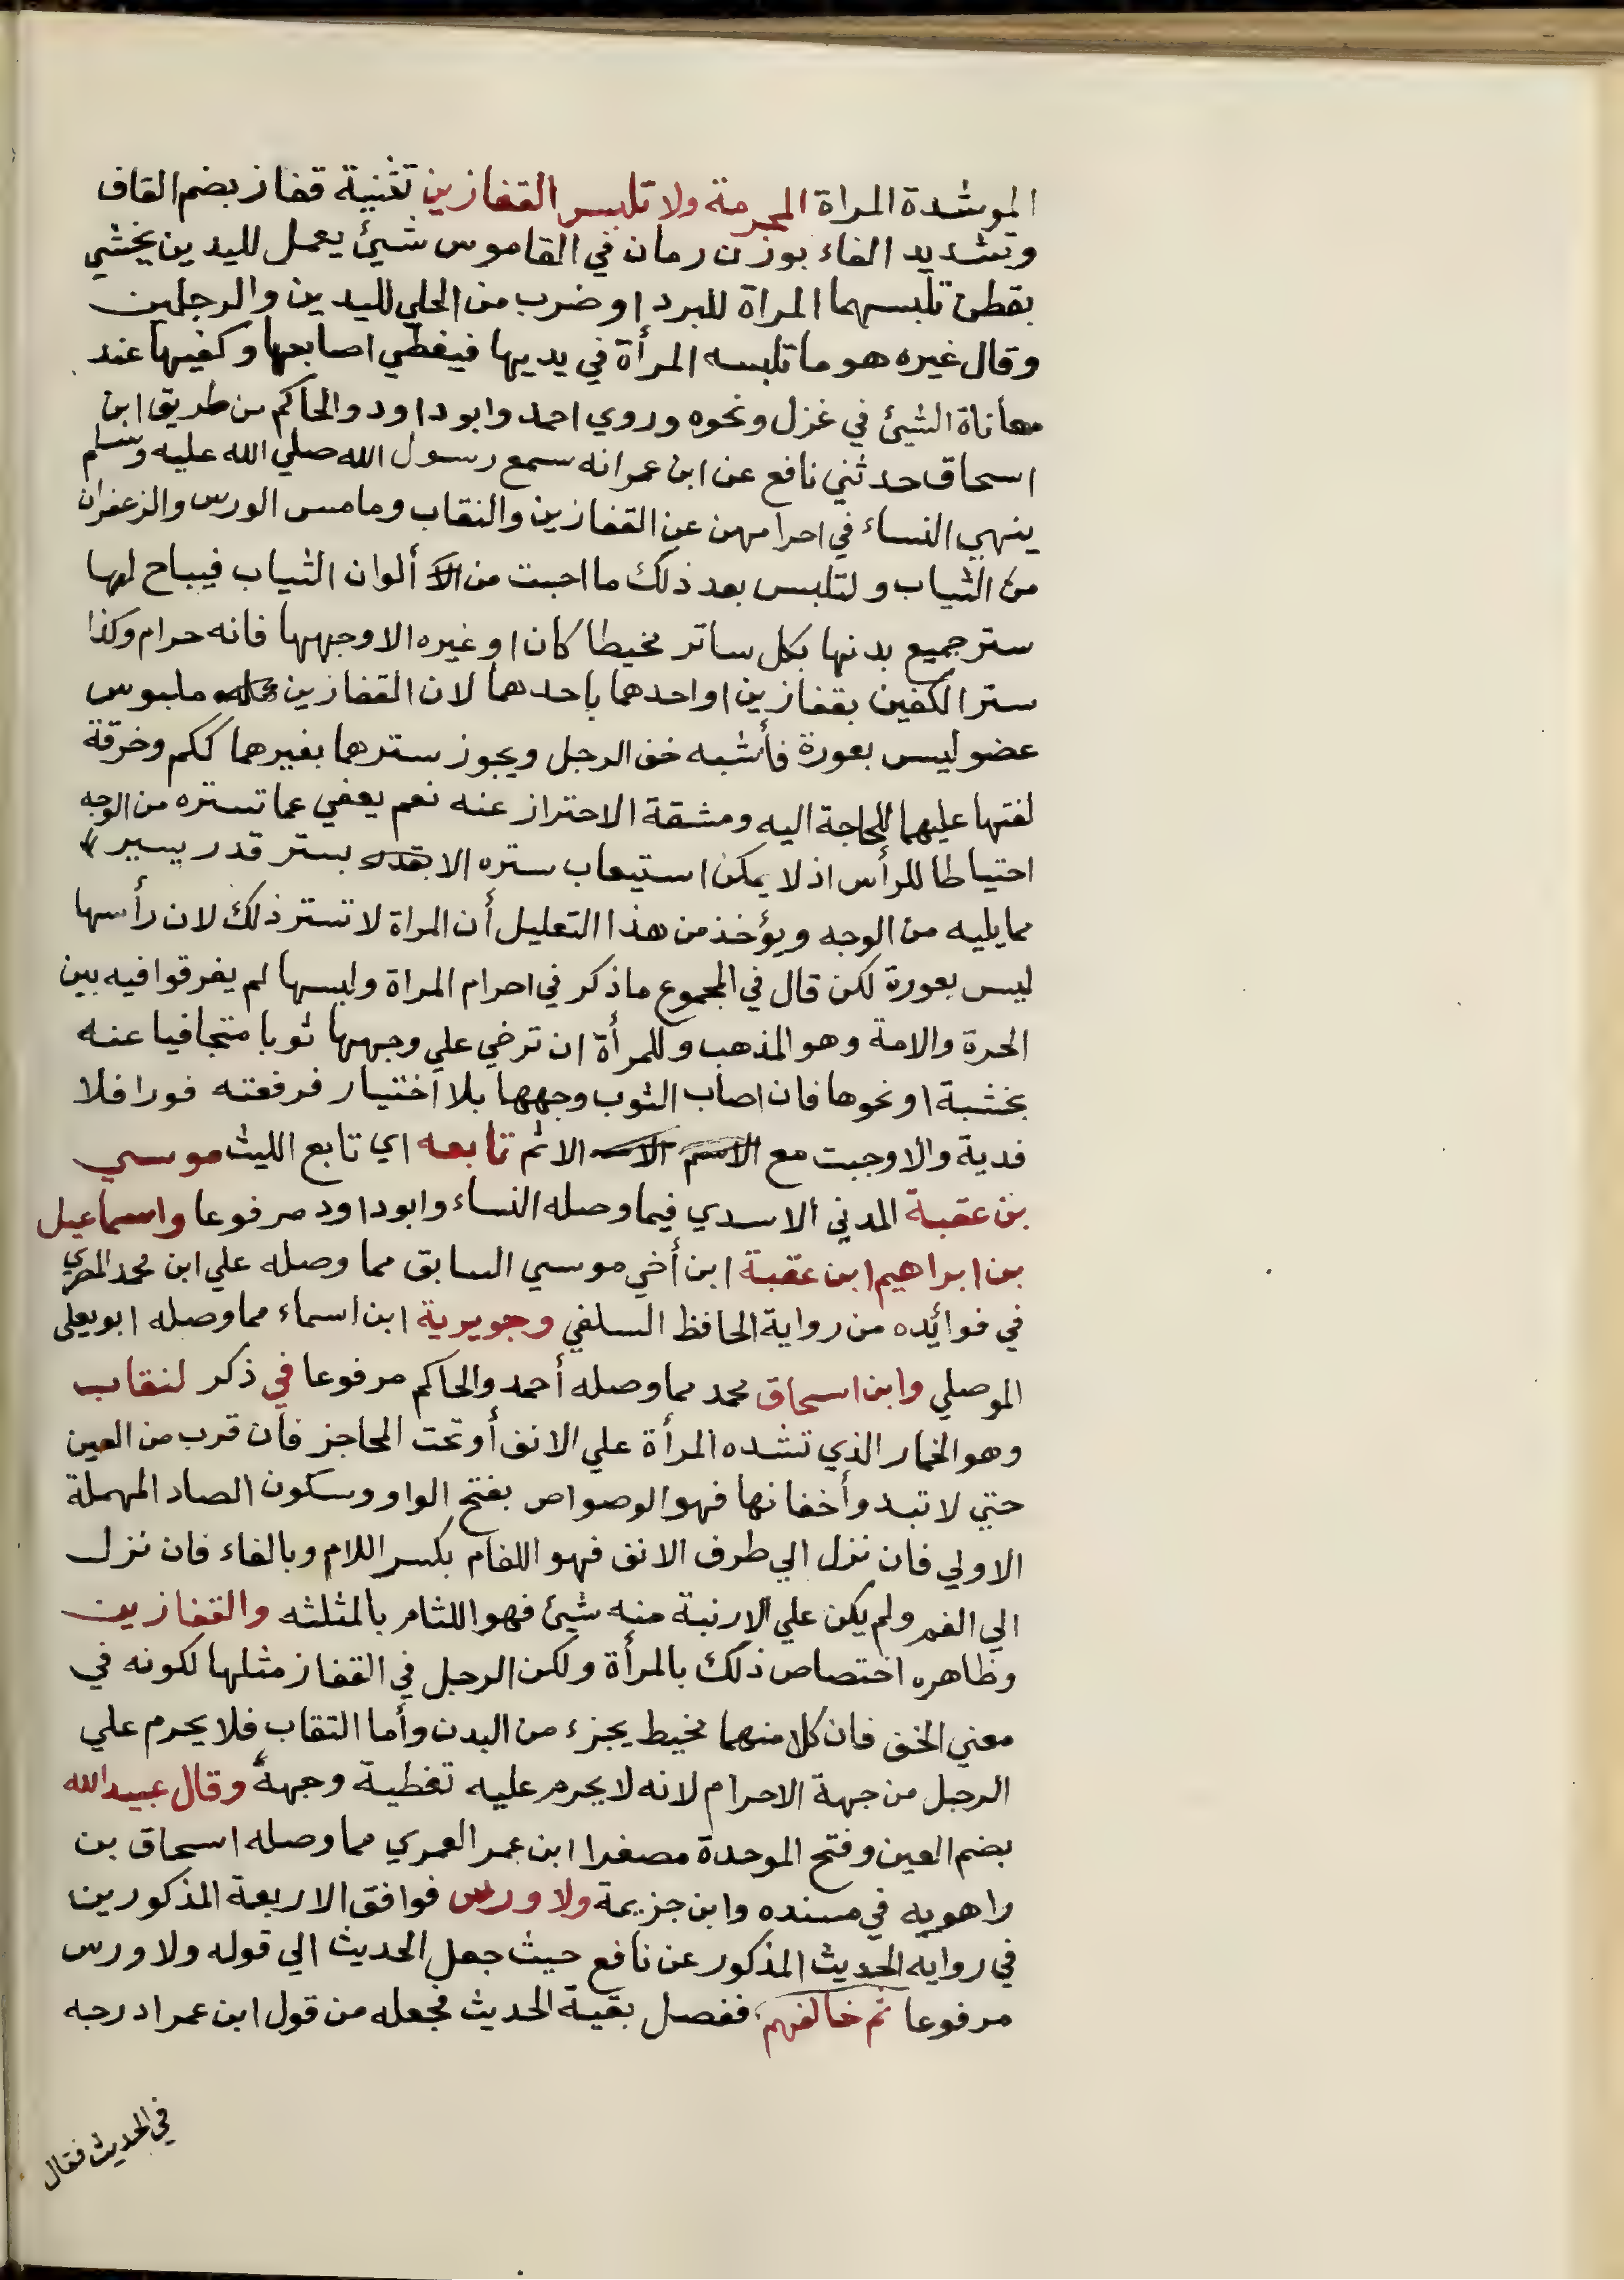 الموشدة المراة المحرمة ولا تلبس القفازين تثنية قفاز بضم القاف
وتشديد الفاء بوزن رمان في القاموس شيئ يعمل لليدين يخشي
بقطن تلبسهما المراة للبرد او ضرب من الحلي لليدين والرجلين
وقال غيره هو ما تلبسه المرأة في يديها فيغطي اصابعها وكفيها عند
معاناة الشيئ في غزل ونحوه وروي احمد وابوداود والحاكم من طريق ابن
اسحاق حدثني نافع عن ابن عمر انه سمع رسول الله صلي الله عليه وسلم
ينهي النساء في احرامهن عن القفازين والنقاب وما مس الورس والزعفران
من الثياب ولتلبس بعد ذلك ما احبت من ألوان الثياب فيباح لها
ستر جميع بدنها بكل ساتر مخيطا كان او غيره الا وجهها فانه حرام وكذا
ستر الكفين بقفازين او احدهما باحدهما لان القفازين ملبوس
عضو ليس بعورة فأشبه خف الرجل ويجوز سترهما بغيرهما ككم وخرقة
لفتها عليهما للحاجة اليه ومشقة الاحتراز عنه نعم يعفي عما تستره من الوجه
احتياطا للرأس اذ لا يمكن استيعاب ستره الا بستر قدر يسير
مما يليه من الوجه ويؤخذ من هذا التعليل أن المراة لا تستر ذلك لان رأسها
ليس بعورة لكن قال في المجموع ما ذكر في احرام المراة ولبسها لم يفرقوا فيه بين
الحرة والامة وهو المذهب وللمرأة ان ترخي علي وجهها ثوبا متجافيا عنه
بخشبة او نحوها فان اصاب الثوب وجهها بلا اختيار فرفعته فورا فلا
فدية والا وجبت مع الاثم تابعه اي تابع الليث موسي
بن عقبة المدني الاسدي فيما وصله النساء وابوداود مرفوعا واسماعيل
بن ابراهيم ابن عقبة ابن أخي موسي السابق مما وصله علي ابن محمد المصري
في فوائده من رواية الحافظ السلفي وجويرية ابن اسماء مما وصله ابويعلى
الموصلي وابن اسحاق محمد مما وصله أحمد والحاكم مرفوعا في ذكر لنقاب
وهو الخمار الذي تشده المرأة علي الانف أو تحت المحاجز فأن قرب من العين
حتي لا تبدو أخفانها فهو الوصواص بفتح الواو وسكون الصاد المهملة
الاولي فان نزل الي طرف الانف فهو اللفام بكسر اللام وبالفاء فان نزل
الي الفم ولم يكن علي الارنبة منه شيئ فهو اللثام بالمثلثه والقفازين
وظاهره اختصاص ذلك بالمرأة ولكن الرجل في القفاز مثلها لكونه في
معني الخف فان كلا منهما مخيط بجزء من البدن وأما النقاب فلا يحرم علي
الرجل من جهة الاحرام لانه لا يحرم عليه تغطية وجهه وقال عبيد الله
بضم العين وفتح الموحدة مصغرا ابن عمر العمري مما وصله اسحاق بن
راهويه في مسنده وابن جزيمة ولا ورس فوافق الاربعة المذكورين
في روايه الحديث المذكور عن نافع حيث جعل الحديث الي قوله ولا ورس
مرفوعا ثم خالفهم ففصل بقية الحديث فجعله من قول ابن عمر ادرجه
في الحديث فقال